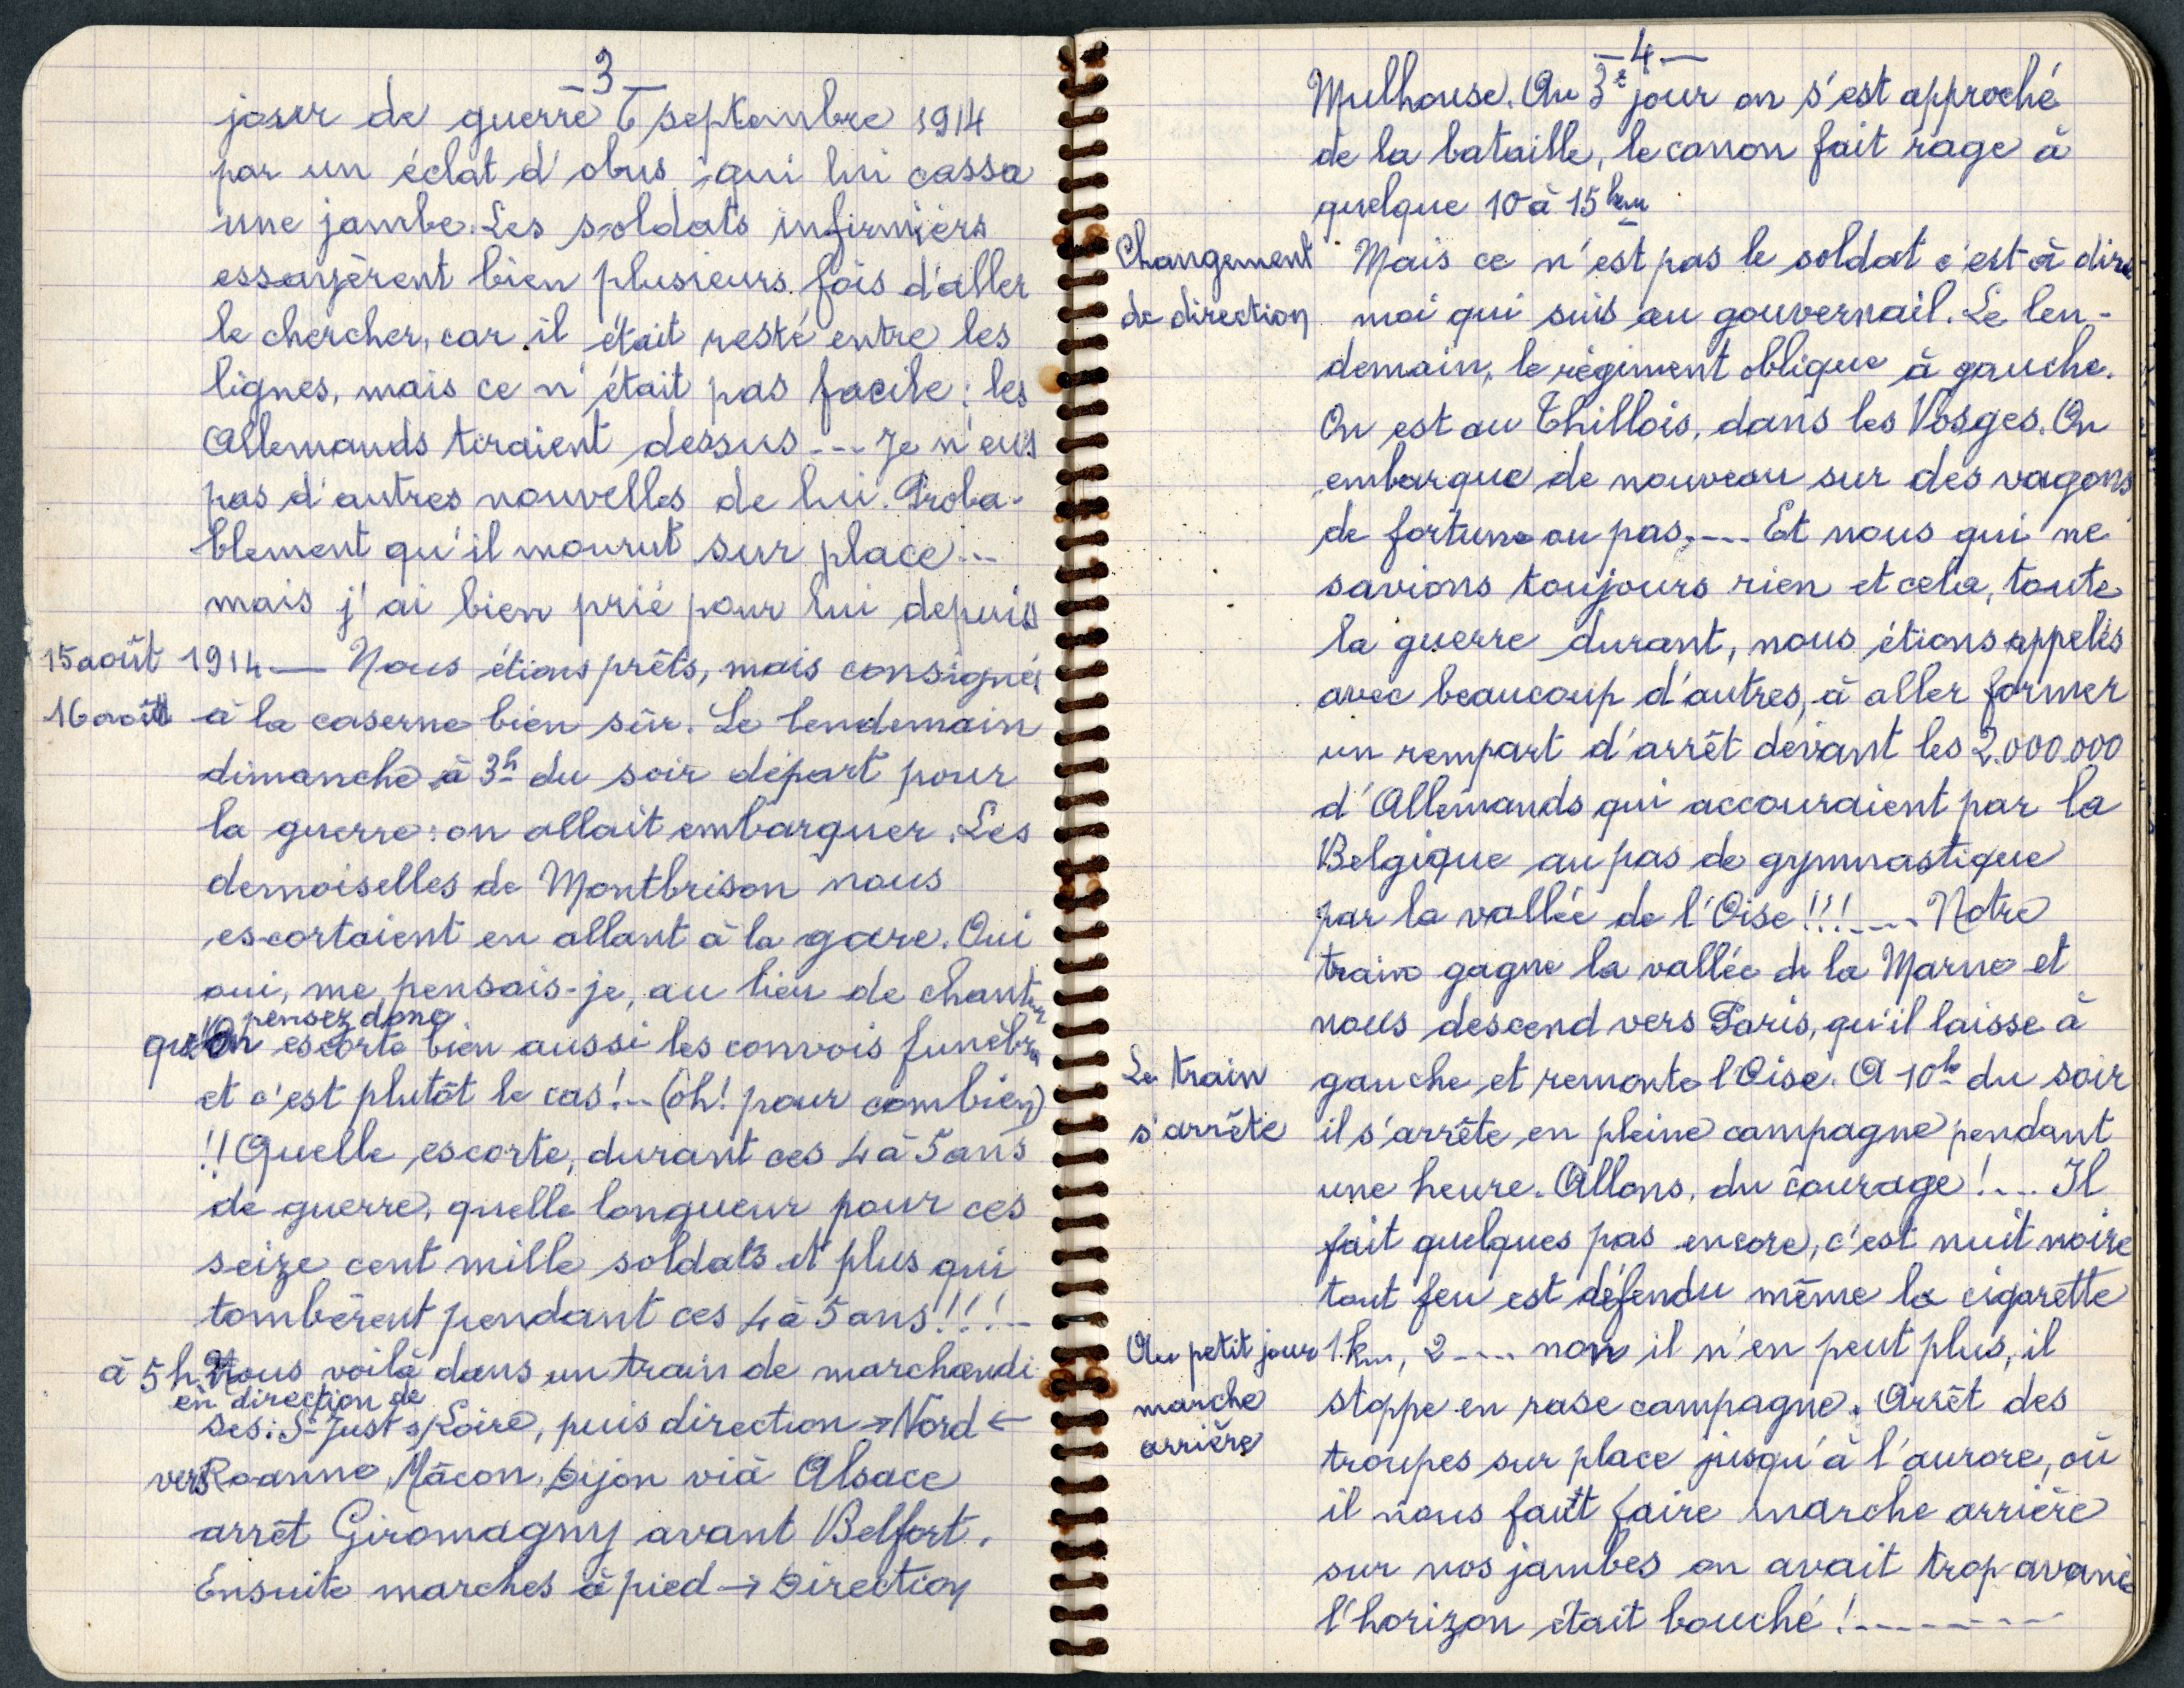 -3-
jour de guerre 6 septembre 1914
par un éclat d'obus qui lui cassa
une jambe. Les soldats infirmiers
essayèrent bien plusieurs fois d'aller
le chercher, car il était resté entre les
lignes, mais ce n'était pas facile : les
Allemands tiraient dessus --- Je n'eus
pas d'autres nouvelles de lui. Proba-
blement qu'il mourut sur place ...
mais j'ai bien prié pour lui depuis
15 août 1914 — Nous étions prêts, mais consignés
16 août à la caserne bien sûr. Le lendemain
dimanche à 3h du soir départ pour
la guerre : on allait embarquer. Les
demoiselles de Montbrison nous
escortaient en allant à la gare. Oui
oui, me pensais-je, au lieu de chanter
pensez donc
qu'on escorte bien aussi les convois funèbres
et c'est plutôt le cas ! -- (oh ! pour combien)
!! Quelle escorte, durant ces 4 à 5 ans
de guerre, quelle longueur pour ces
seize cent mille soldats et plus qui
tombèrent pendant ces 4 à 5 ans !!! -
à 5 h. Nous voilà dans un train de marchandi-
en direction de
ses : St Just s/Loire, puis direction → Nord ←
vers Roanne, Mâcon, Dijon viâ Alsace
arrêt Giromagny avant Belfort.
Ensuite marches à pied → Direction
-4-
Mulhouse. Au 3e jour on s'est approché
de la bataille, le canon fait rage à
quelque 10 à 15 km
Changement Mais ce n'est pas le soldat c'est-à dire
de direction moi qui suis au gouvernail. Le len-
demain, le régiment oblique à gauche.
On est au Thillois, dans les Vosges. On
embarque de nouveau sur des vagons
de fortune ou pas, ---- Et nous qui ne
savions toujours rien et cela, toute
la guerre durant, nous étions appelés
avec beaucoup d'autres, à aller former
un rempart d'arrêt devant les 2.000.000
d'Allemands qui accouraient par la
Belgique au pas de gymnastique
par la vallée de l'Oise !!! ---- Notre
train gagne la vallée de la Marne et
nous descend vers Paris, qu'il laisse à
Le train gauche, et remonte l'Oise. A 10h du soir
s'arrête il s'arrête en pleine campagne pendant
une heure. Allons, du courage ! --- Il
fait quelques pas encore, c'est nuit noire
tout feu est défendu même la cigarette
Au petit jour 1 km, 2 ---- non il n'en peut plus, il
marche stoppe en rase campagne. Arrêt des
arrière troupes sur place jusqu'à l'aurore, où
il nous faut faire marche arrière
sur nos jambes on avait trop avancé
l'horizon était bouché ! -------